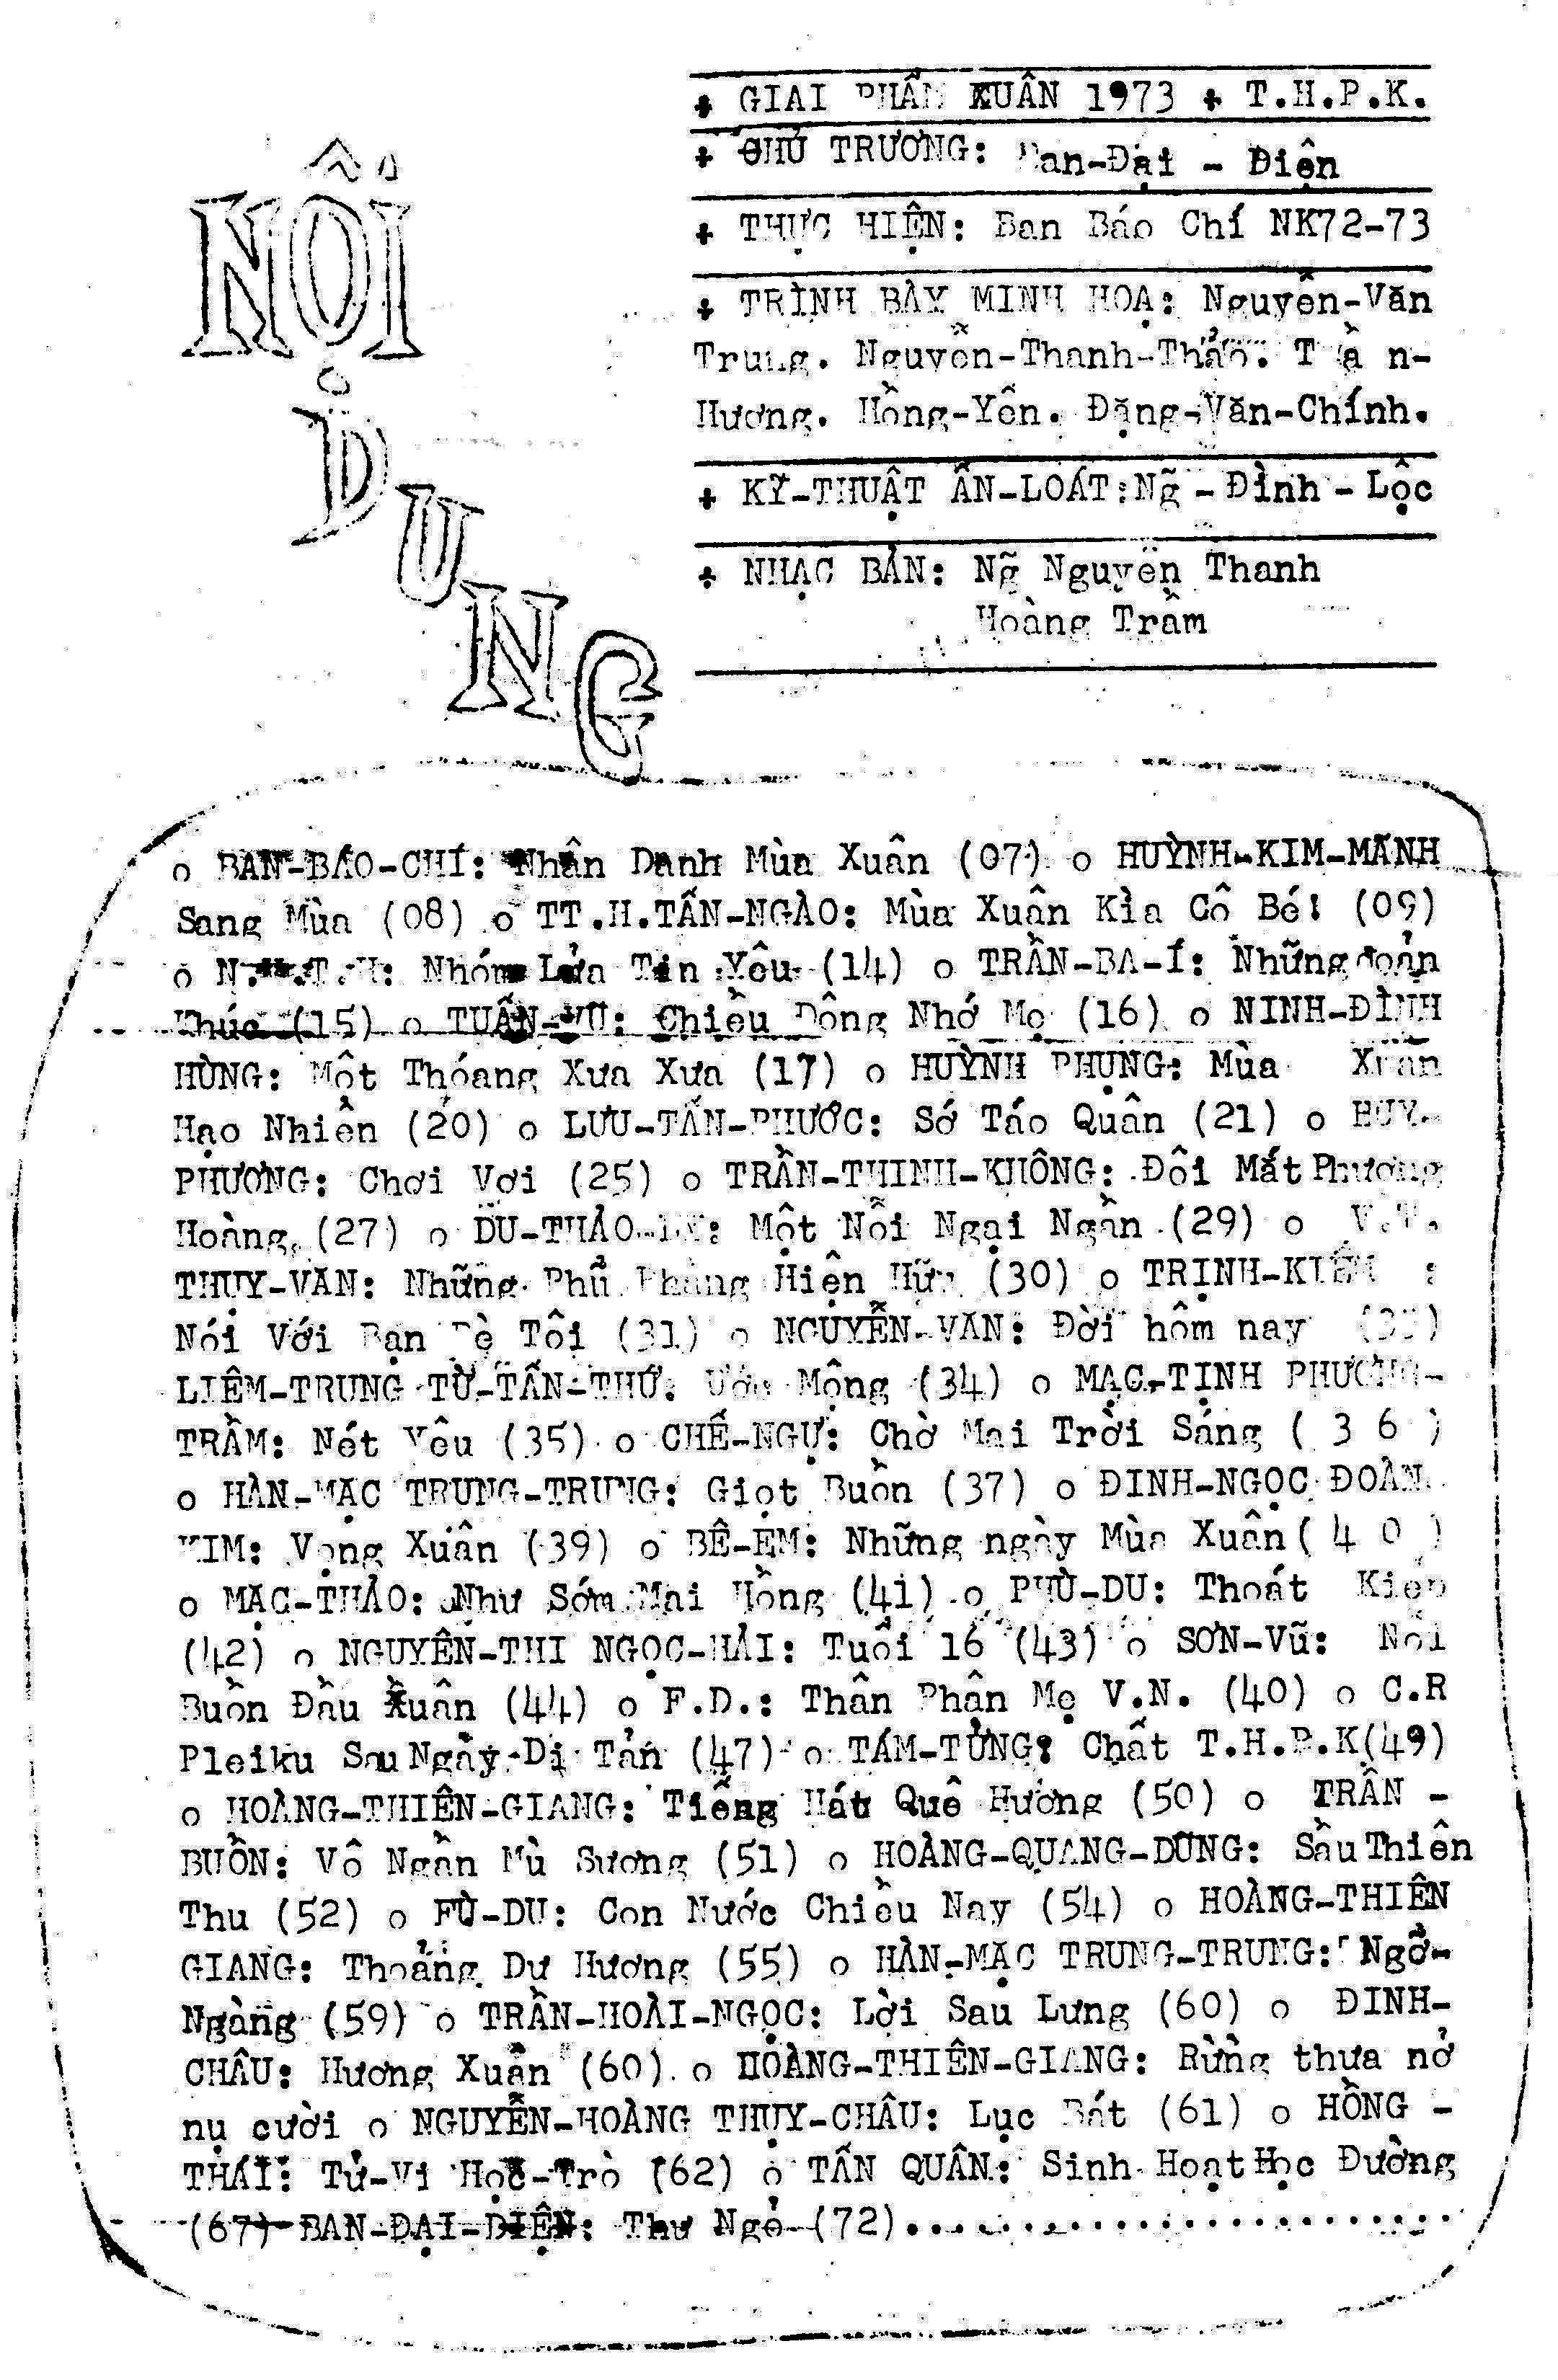 NỘI
DUNG
+ GIAI PHẨM XUÂN 1973 + T.H.P.K.
+ CHỦ TRƯƠNG: Ban-Đại - Diện
+ THỰC HIỆN: Ban Báo Chí NK72-73
+ TRÌNH BÀY MINH HOẠ: Nguyễn-Văn
Trung. Nguyễn-Thanh-Thảo. Trần-
Hương. Hồng-Yên. Đặng-Văn-Chính.
+ KỸ-THUẬT ẤN-LOÁT:Ng̃ - Đình - Lộc
+ NHẠC BẢN: Ng̃ Nguyễn Thanh
Hoàng Trầm
o BAN-BÁO-CHÍ: Nhân Danh Mùa Xuân (07) o HUỲNH-KIM-MÃNH
Sang Mùa (08) o TT.H.TẤN-NGÀO: Mùa Xuân Kìa Cô Bé! (09)
o Nhóm Lửa Tin Yêu (14) o TRẦN-BA-Í: Những đoản
Khúc (15) o TUẤN-VŨ: Chiều Đông Nhớ Mẹ (16) o NINH-ĐÌNH
HÙNG: Một Thóang Xưa Xưa (17) o HUỲNH PHỤNG: Mùa Xuân
Hạo Nhiên (20) o LƯU-TẤN-PHƯỚC: Sớ Táo Quân (21) o HUY-
PHƯƠNG: Chơi Vơi (25) o TRẦN-THINH-KHÔNG: Đôi Mắt Phượng
Hoàng (27) o DU-THẢO-LY: Một Nỗi Ngại Ngần (29) o V.T.
THỤY-VÂN: Những Phũ Phàng Hiện Hữu (30) o TRỊNH-KIÊM :
Nói Với Bạn Bè Tôi (31) o NGUYỄN-VAN: Đời hôm nay
LIÊM-TRUNG TỪ-TẤN-THỨ. Ước Mộng (34) o MẠC-TỊNH PHƯƠNG-
TRẦM: Nét Yêu (35) o CHẾ-NGỰ: Chờ Mai Trời Sáng ( 3 6 )
o HÀN-MẠC TRUNG-TRUNG: Giọt Buồn (37) o ĐINH-NGỌC ĐOÀN
KIM: Vọng Xuân (39) o BÊ-EM: Những ngày Mùa Xuân ( 4 0 )
o MẠC-THẢO: Như Sớm Mai Hồng (41) o PHÙ-DU: Thoát Kiếp
(42) o NGUYỄN-THI NGỌC-HẢI: Tuổi 16 (43) o SƠN-Vũ: Nỗi
Buồn Đầu Xuân (44) o F.D.: Thân Phận Mẹ V.N. (40) o C.R
Pleiku Sau Ngày Di Tản (47) o TÁM-TỬNG: Chất T.H.P.K(49)
o HOÀNG-THIÊN-GIANG: Tiếng Hát Quê Hương (50) o TRẦN -
BUỒN: Vô Ngần Mù Sương (51) o HOÀNG-QUANG-DŨNG: Sầu Thiên
Thu (52) o FÙ-DU: Con Nước Chiều Nay (54) o HOÀNG-THIÊN
GIANG: Thoảng Dư Hương (55) o HÀN-MẠC TRUNG-TRUNG: Ngỡ-
Ngàng (59) o TRẦN-HOÀI-NGỌC: Lời Sau Lưng (60) o ĐINH-
CHÂU: Hương Xuân (60) o HOÀNG-THIÊN-GIANG: Rừng thưa nở
nụ cười o NGUYỄN-HOÀNG THỤY-CHÂU: Lục Bát (61) o HỒNG -
THÁI: Tử-Vi Học-Trò (62) o TẤN QUÂN: Sinh Hoạt Học Đường
(67) BAN-ĐẠI-DIỆN: Thư Ngỏ (72)..........................